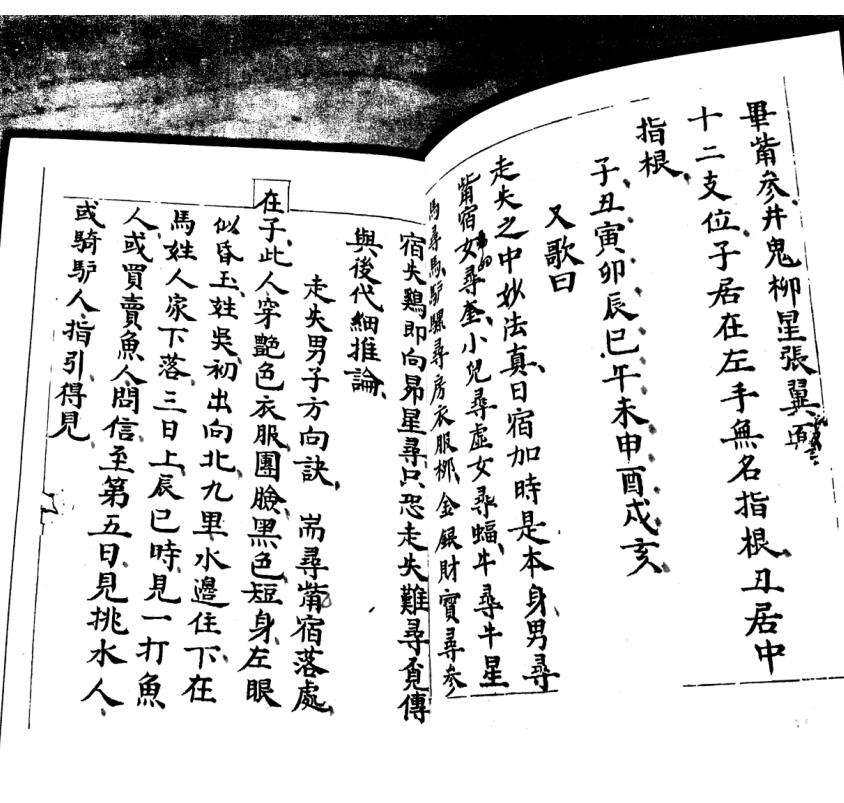 畢觜参井鬼柳星張翼
十二支位子居在左手無名指根丑居中
指根
子丑寅卯辰巳午未申酉戌亥
又歌曰
走失之中妙法真日宿加時是本身男尋
觜宿女尋奎小兒尋虛女尋蝠牛尋牛星
馬尋馬驴騾尋房衣服柳金銀財寶尋参
宿失鷄即向昴星尋只恐走失難尋覓傳
與後代細推論
走失男子方向訣 耑尋觜宿落處
在子此人穿艷色衣服團臉黑色短身左眼
似昏玉姓吳初出向北九里水邊住下在
馬姓人家下落三日上辰巳時見一打魚
人或買賣魚人問信至第五日見挑水人
或騎驴人指引得見